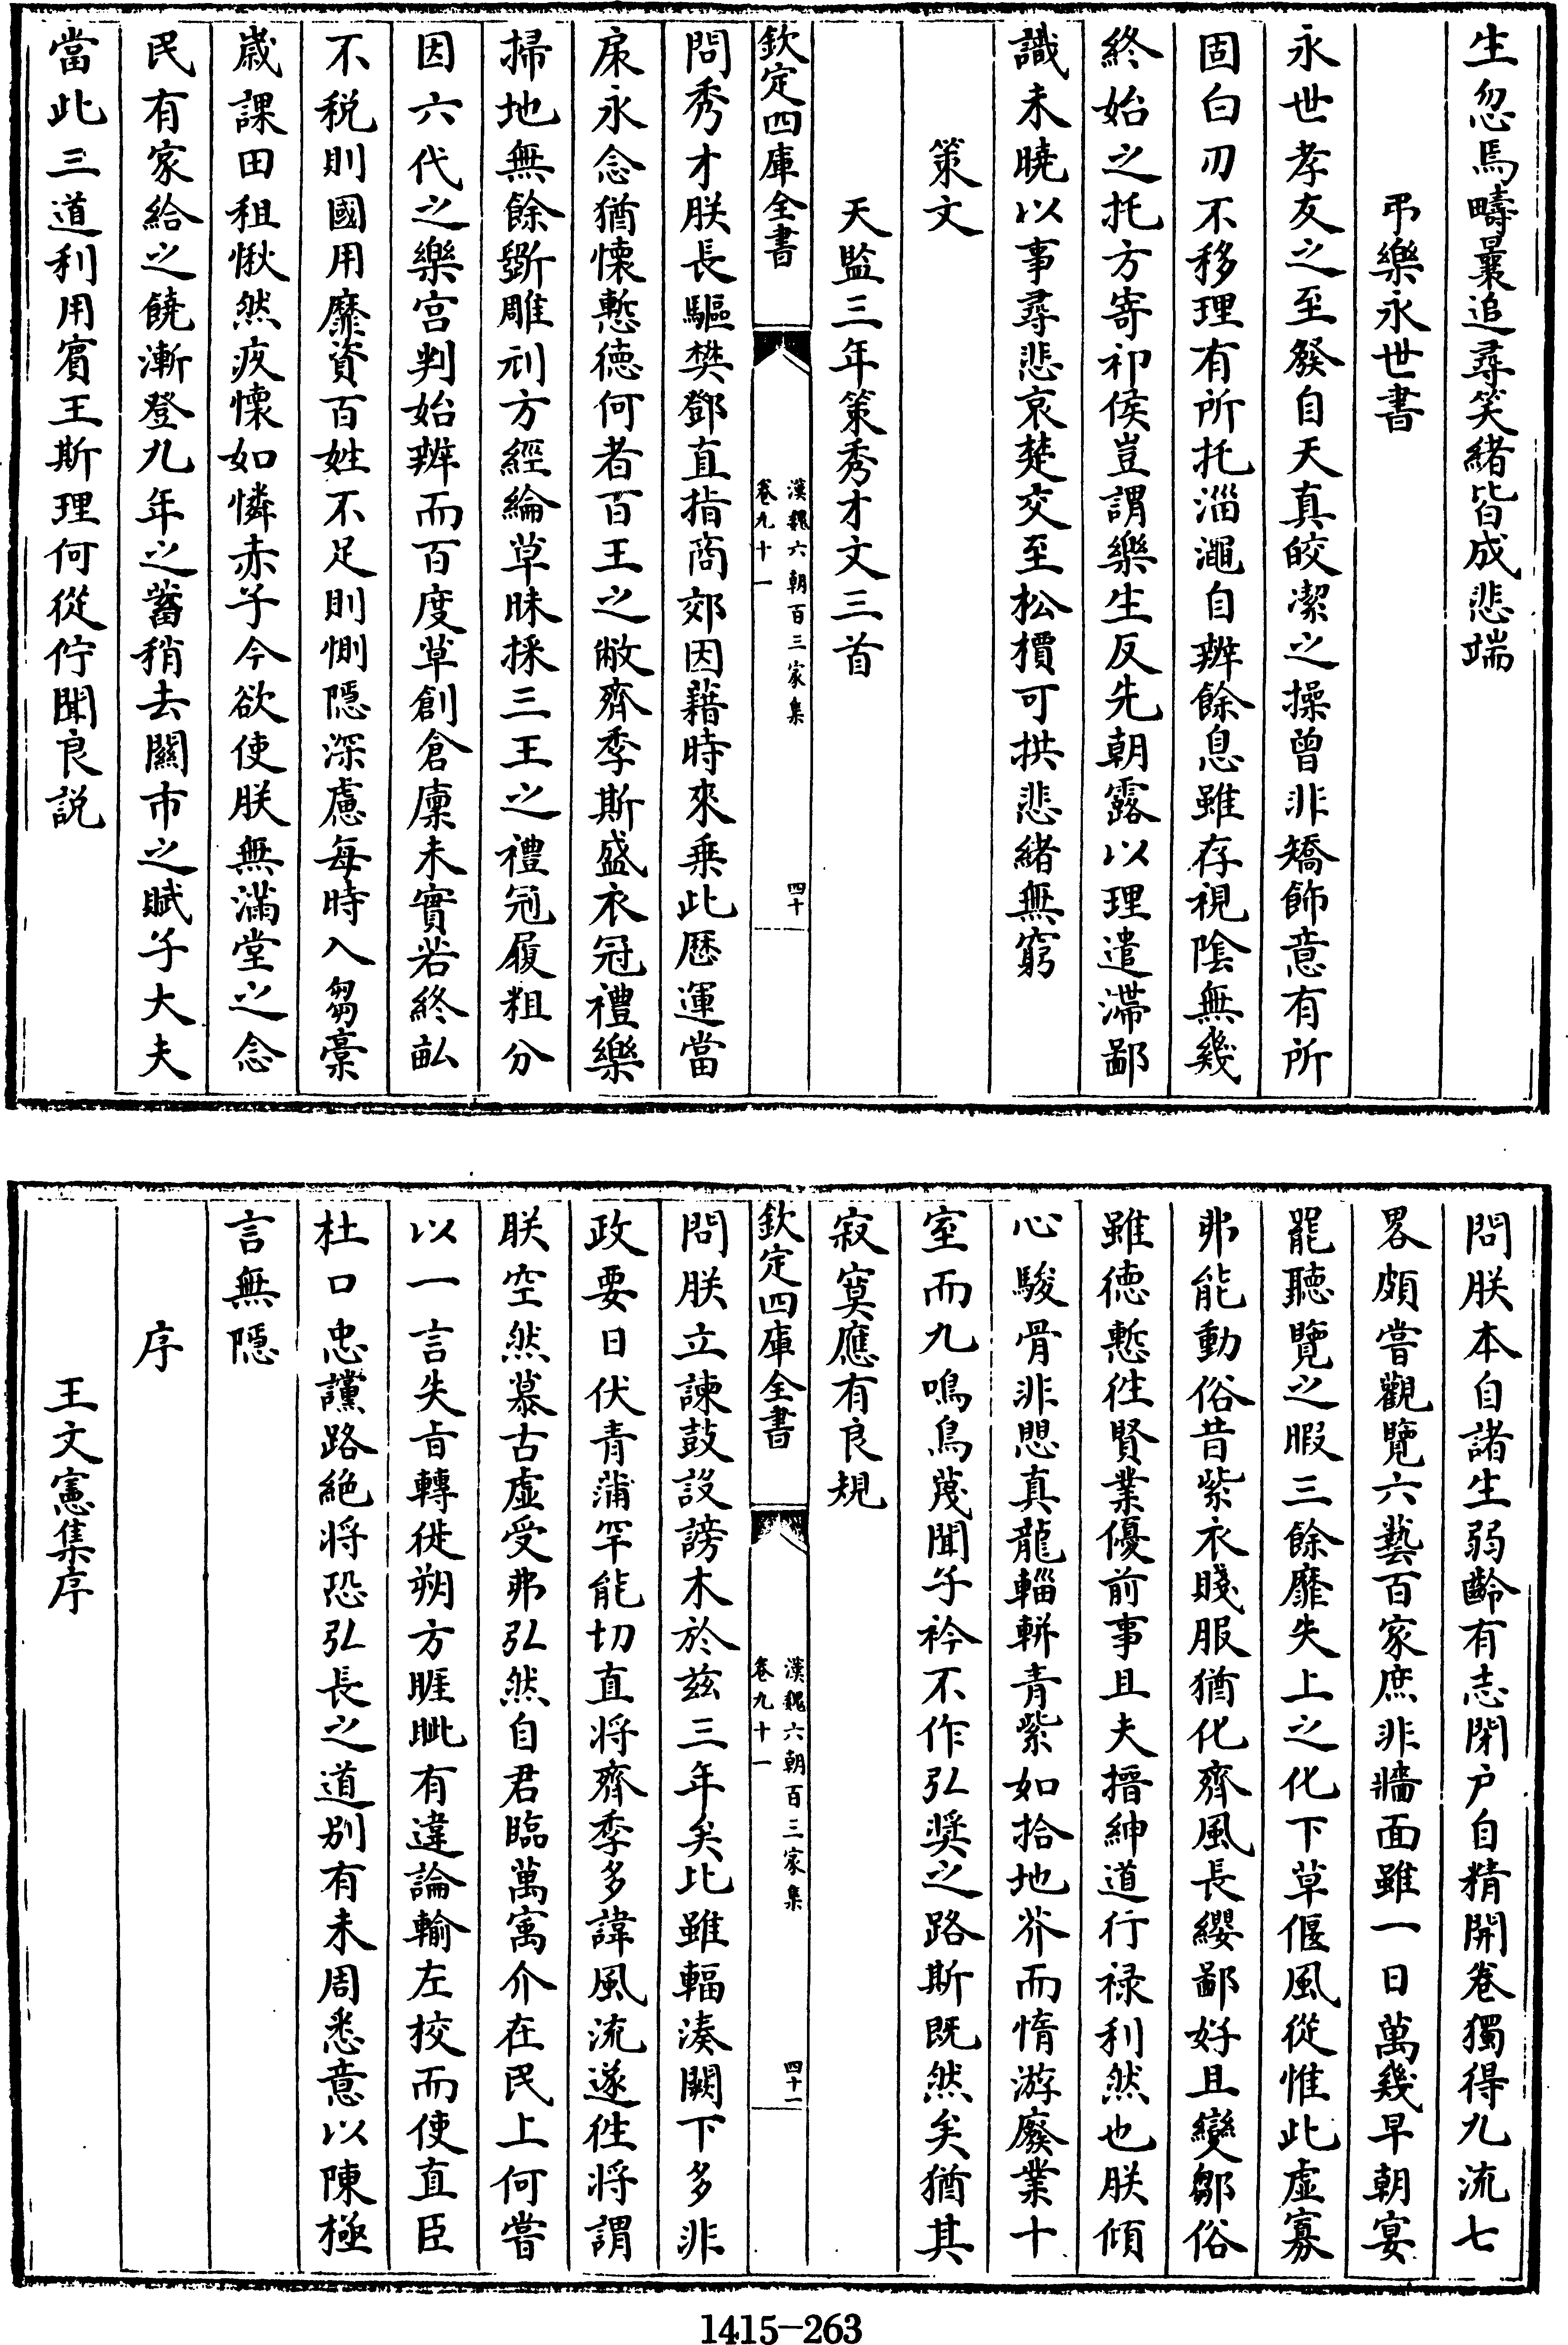 生忽焉疇曩追尋笑緒皆成悲端
弔樂永世書
永世孝友之至發自天真皎潔之操曾非矯飾意有所
固白刃不移理有所托淄澠自辨餘息雖存視陰無幾
終始之托方寄祁侯豈謂樂生反先朝露以理遣滯鄙
識未曉以事尋悲哀楚交至松檟可拱悲緒無窮
策文
天監三年策秀才文三首
欽定四庫全書
漢魏六朝百三家集
卷九十一
四十
問秀才朕長驅樊鄧直指商郊因藉時來乗此歴運當
扆永念猶懐慙德何者百王之敝齊季斯盛衣冠禮樂
掃地無餘斲雕刓方經綸草昧採三王之禮冠履粗分
因六代之樂宫判始辨而百度草創倉廩未實若終畝
不税則國用靡資百姓不足則惻隠深慮每時入芻藁
嵗課田租愀然疚懷如憐赤子今欲使朕無滿堂之念
民有家給之饒漸登九年之蓄稍去關市之賦子大夫
當此三道利用賓王斯理何從佇聞良説
問朕本自諸生弱齡有志閉户自精開卷獨得九流七
畧頗嘗觀覽六藝百家庶非牆面雖一日萬幾早朝宴
罷聽覽之暇三餘靡失上之化下草偃風從惟此虚寡
弗能動俗昔紫衣賤服猶化齊風長纓鄙好且變鄒俗
雖徳慙徃賢業優前事且夫搢紳道行禄利然也朕傾
心駿骨非懼真龍輜軿青紫如拾地芥而惰游廢業十
室而九鳴鳥蔑聞子衿不作弘奬之路斯既然矣猶其
寂寞應有良規
欽定四庫全書
漢魏六朝百三家集
卷九十一
四十一
問朕立諫鼓設謗木於兹三年矣比雖輻湊闕下多非
政要日伏青蒲罕能切直将齊季多諱風流遂徃将謂
朕空然慕古虚受弗弘然自君臨萬寓介在民上何嘗
以一言失㫖轉徙朔方睚眦有違論輸左挍而使直臣
杜口忠讜路絶将恐弘長之道别有未周悉意以陳極
言無隠
序
王文憲集序
1415-263